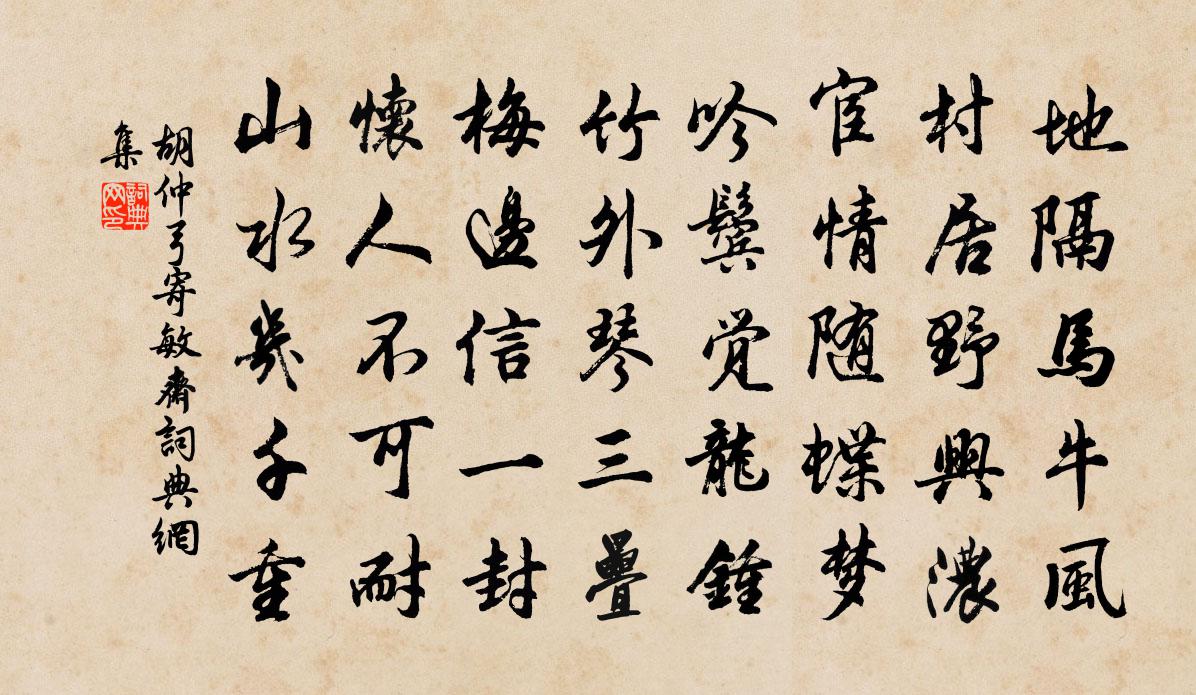 地隔馬牛風
村居野興濃
宦情随蝶梦
吟鬓觉龍鍾
竹外琴三疊
梅邊信一封
懷人不可耐
山水幾千重
胡仲弓寄敏齋詞典網
集
詞典網印